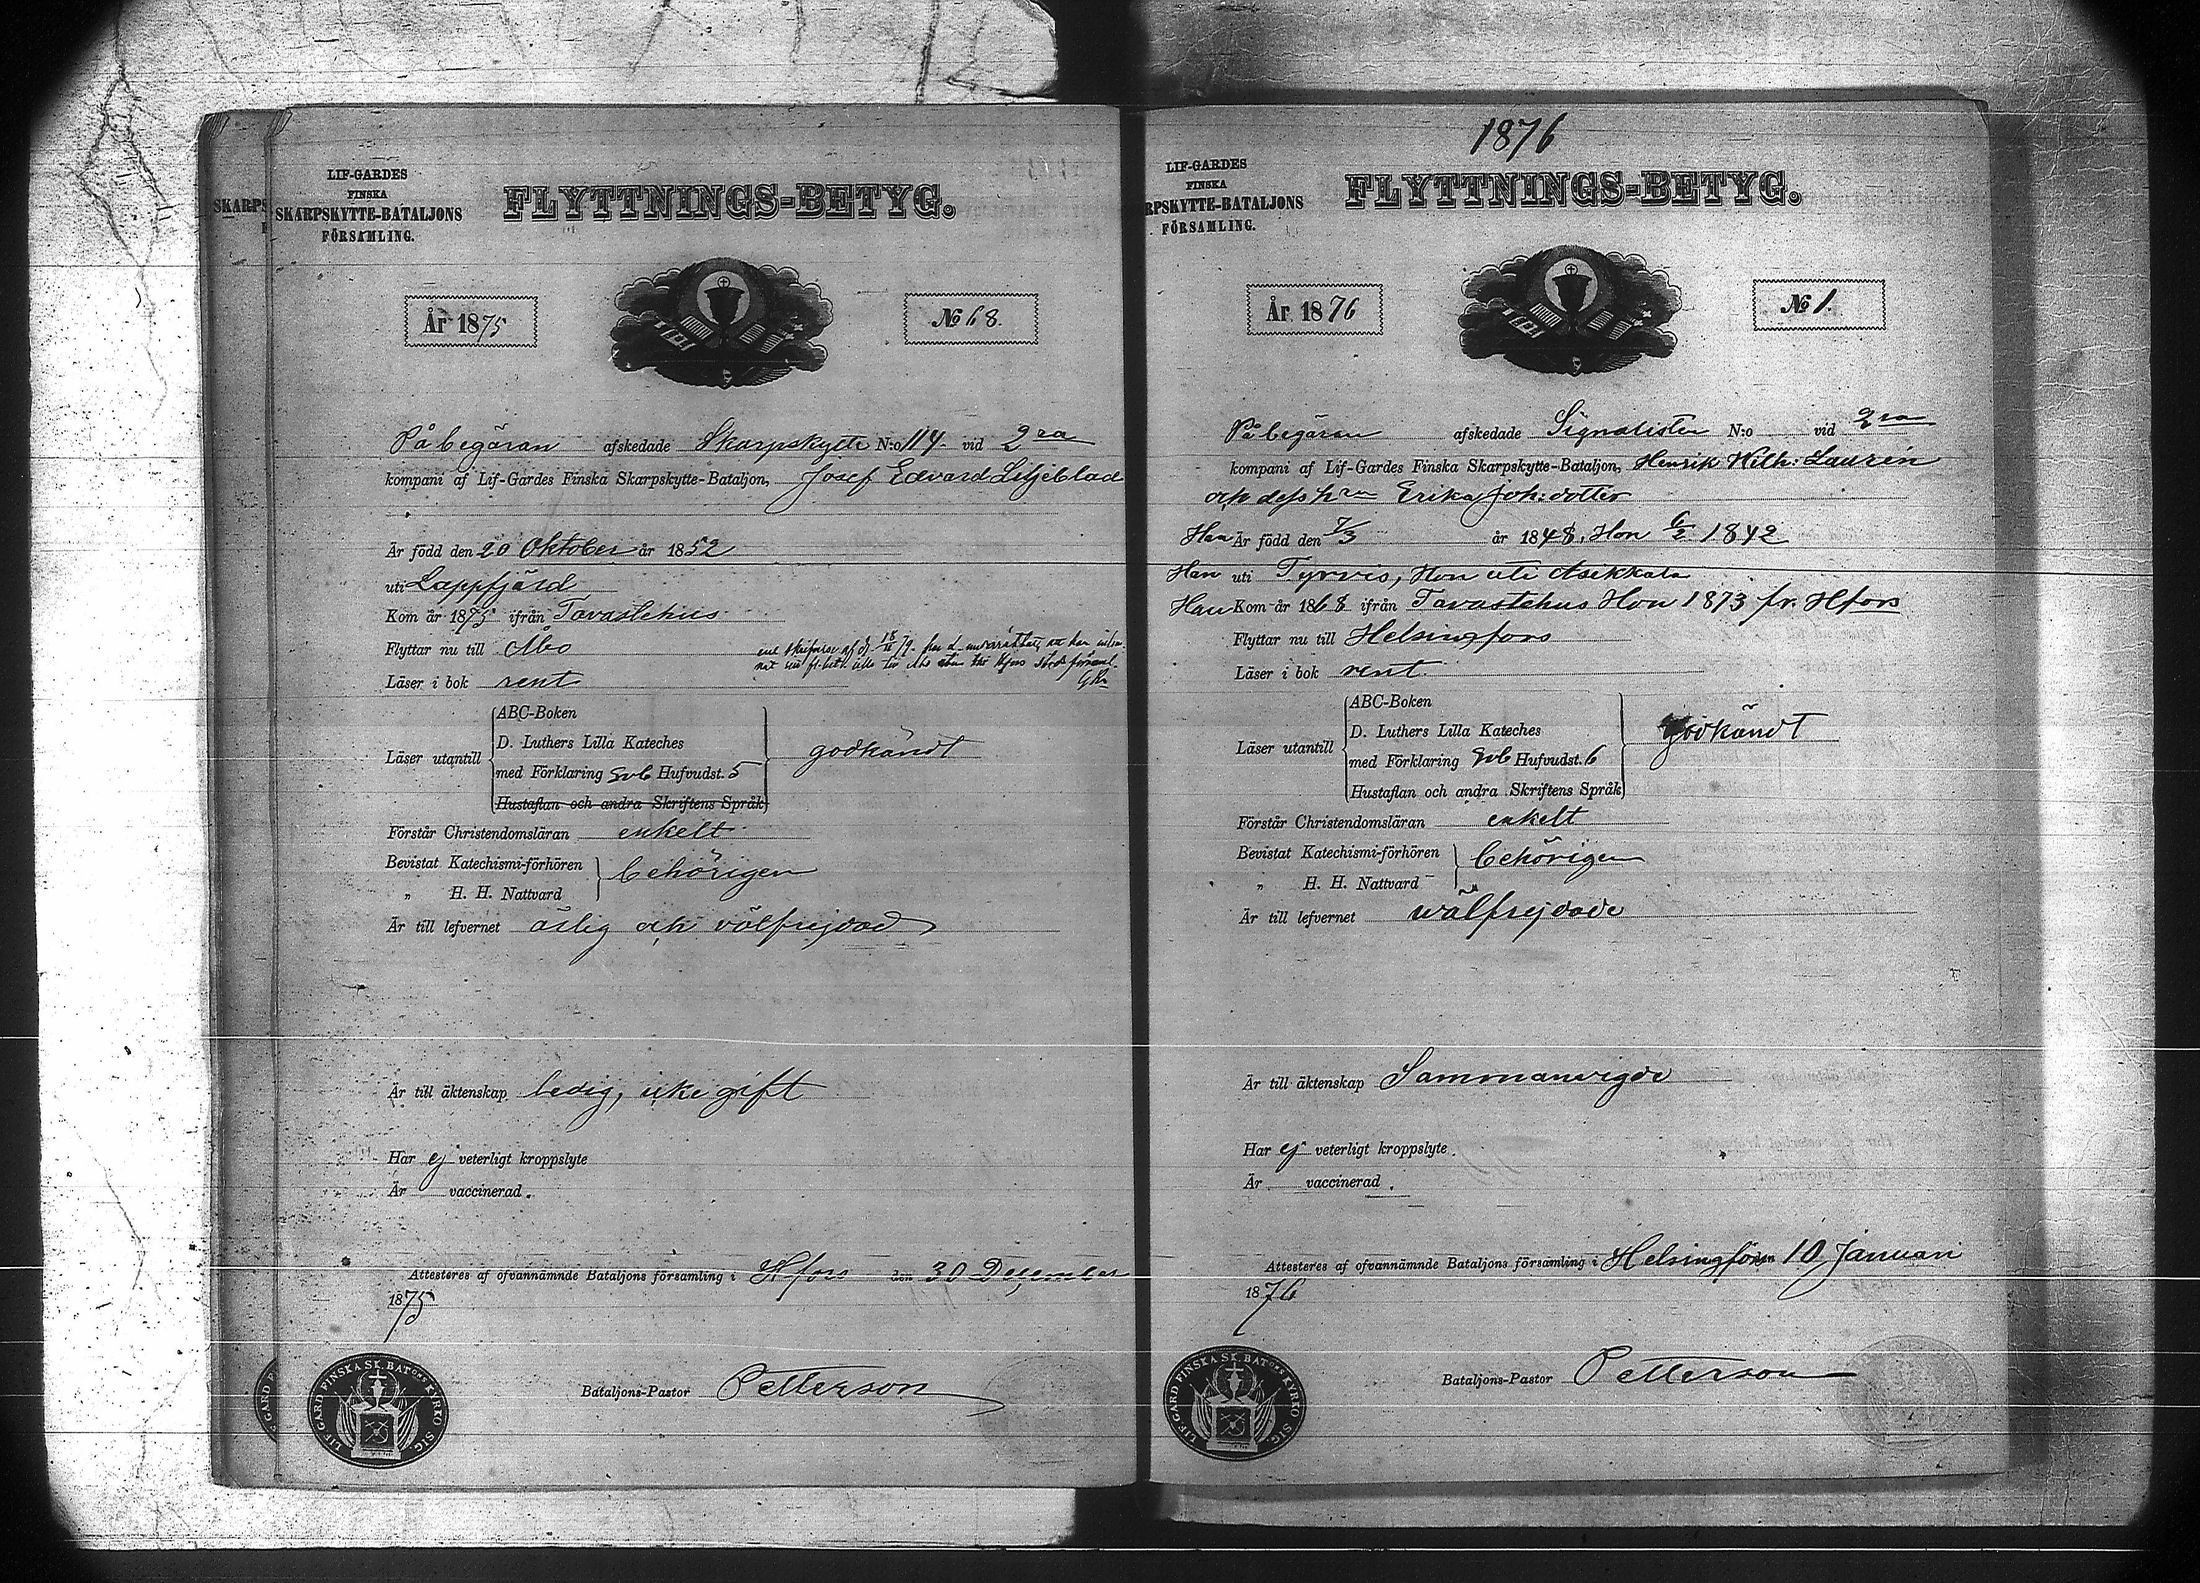 LIF-GARDES
FINSKA
SKARPSKYTTE-BATALJONS
FÖRSAMLING.
FLYTTNINGS-BETYG.
År 1875
No 68.
På begäran afskedade Skarpskytte N:o 114 vid 2ra
kompani af Lif-Gardes Finska Skarpskytte-Bataljon, Josef Edvard Liljeblad
Är född den 20 Oktober år 1852
uti Lappfjärd
Kom år 1875 ifrån Tavastehus
Flyttar nu till Åbo
Läser i bok rent
Läser utantill
ABC-Boken
D. Luthers Lilla Kateches
med Förklaring Svb Hufvudst. 5
Hustaflan och andra Skriftens Språk
godkändt
Förstår Christendomsläran enkelt
Bevistat Katechismi-förhören
„ H. H. Nattvard
behörigen
Är till lefvernet ärlig och välfrejdad
Är till äktenskap ledig, icke gift
Har ej veterligt kroppslyte
Är vaccinerad.
Attesteres af ofvannämnde Bataljons församling i Hfors den 30 December
1875
Bataljons-Pastor Petterson
LIF GARD FINSKA SK. BATONS KYRKO SIG.
SKARPS
1876
LIF-GARDES
FINSKA
RPSKYTTE-BATALJONS
FÖRSAMLING.
FLYTTNINGS-BETYG.
År 1876
No 1.
På begäran afskedade Signalisten N:o vid 2ra
kompani af Lif-Gardes Finska Skarpskytte-Bataljon, Henrik Wilh: Laurén
och dess hru Erika Joh:dotter
Han Är född den 7/3 år 1848, Hon 6/2 1842
Han uti Tyrvis, Hon uti Asikkala
Han Kom år 1868 ifrån Tavastehus Hon 1873 fr. Hfors
Flyttar nu till Helsingfors
Läser i bok rent.
Läser utantill
ABC-Boken
D. Luthers Lilla Kateches
med Förklaring Svb Hufvudst. 6
Hustaflan och andra Skriftens Språk
godkändt
Förstår Christendomsläran enkelt
Bevistat Katechismi-förhören
„ H. H. Nattvard
behörigen
Är till lefvernet wälfrejdade
Är till äktenskap Sammanvigde
Har ej veterligt kroppslyte.
Är vaccinerad.
Attesteres af ofvannämnde Bataljons församling i Helsingfors 10 Januari
1876
Bataljons-Pastor Petterson
LIF GARD FINSKA SK. BATONS KYRKO SIG.